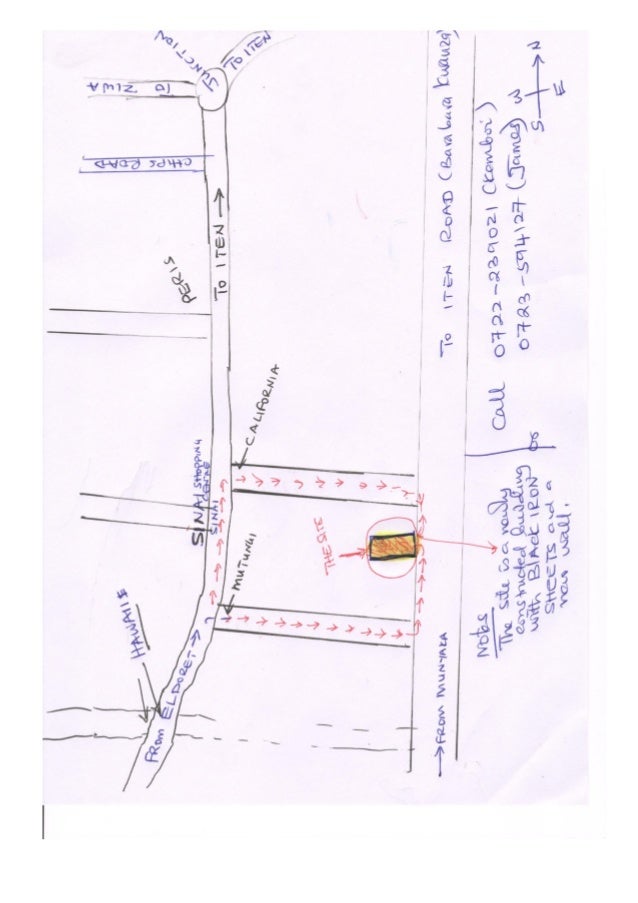 JUNCTION
TO ITEN
TO ZIWA
CHIPS ROAD
PERIS
TO ITEN →
SINAI SHOPPING
CENTRE
SINAI
CALIFORNIA
MUTUNGI
HAWAIIS
FROM ELDORET →
THE SITE
→ FROM MUNYAKA
TO ITEN ROAD (Barabara Kuruza)
N
W
E
S
Call 0722-239021 (Kamboi)
or 0723-594127 (James)
Notes
The site is a newly
constructed building
with BLACK IRON
SHEETS and a
new wall.